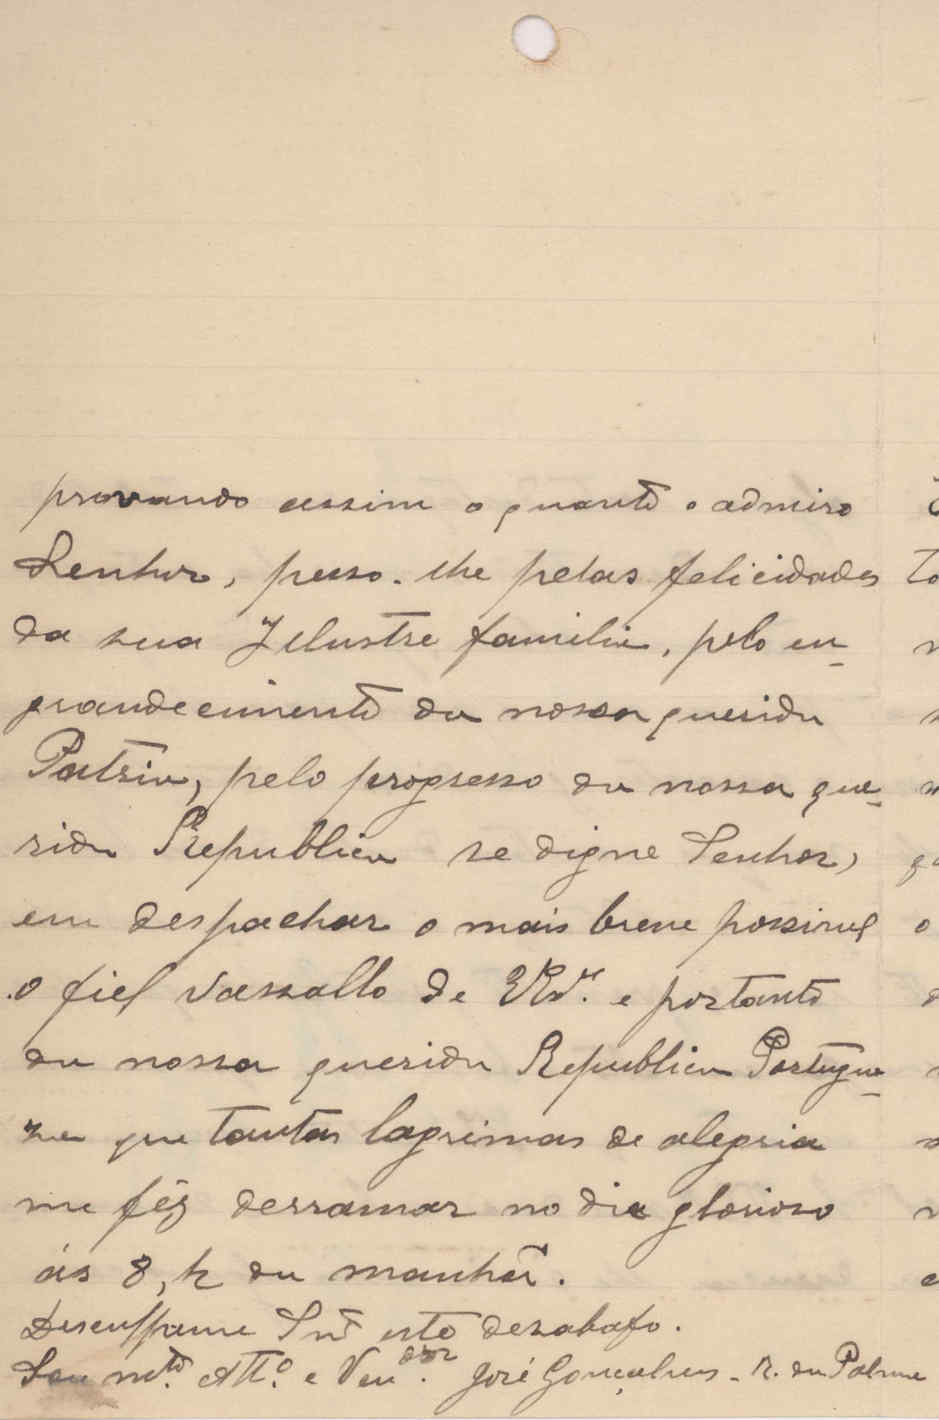 provando assim o quanto o admiro
Senhor, peço-lhe pelas felicidades
da sua Illustre familia, pelo en-
grandecimento da nossa querida
Patria, pelo progresso da nossa que-
rida Republica se digne Senhor,
em despachar o mais breve possivel
o fiel vassallo de e portanto
da nossa querida Republica Portugue-
za que tantas lagrimas de alegria
me fêz derramar no dia glorioso
ás 8, h da manhã.
Desculpame Snr este desabafo.
Seu mto. Atto. e Vendor. José Gonçalves - R. da Palma